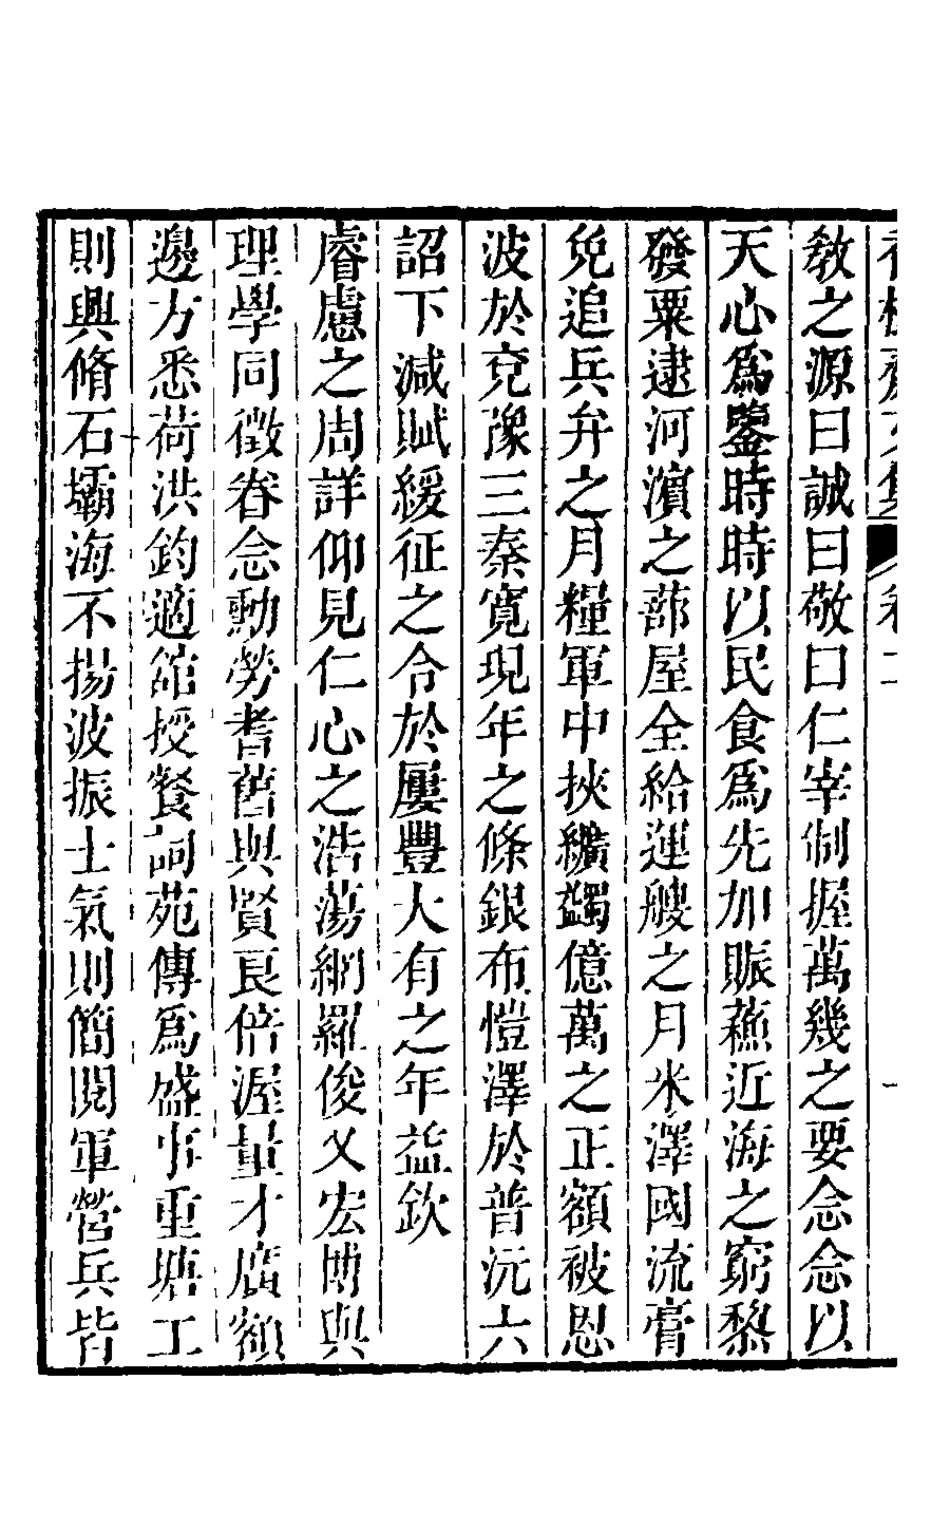 教之源曰誠曰敬曰仁宰制握萬幾之要念念以
天心爲鑒時時以民食爲先加賑蘓近海之窮黎
發粟逮河濵之蔀屋全給運艘之月米澤國流膏
免追兵弁之月糧軍中挾纊蠲億萬之正額被恩
波於兖豫三秦寬現年之條銀布愷澤於普沅六
詔下減賦緩征之令於屢豐大有之年益欽
睿慮之周詳仰見仁心之浩蕩網羅俊乂宏博與
理學同徵眷念勳勞耆舊與賢良倍渥量才廣額
邊方悉荷洪鈞適舘授餐詞苑傳爲盛事重塘工
則興脩石壩海不揚波振士氣則簡閱軍營兵皆